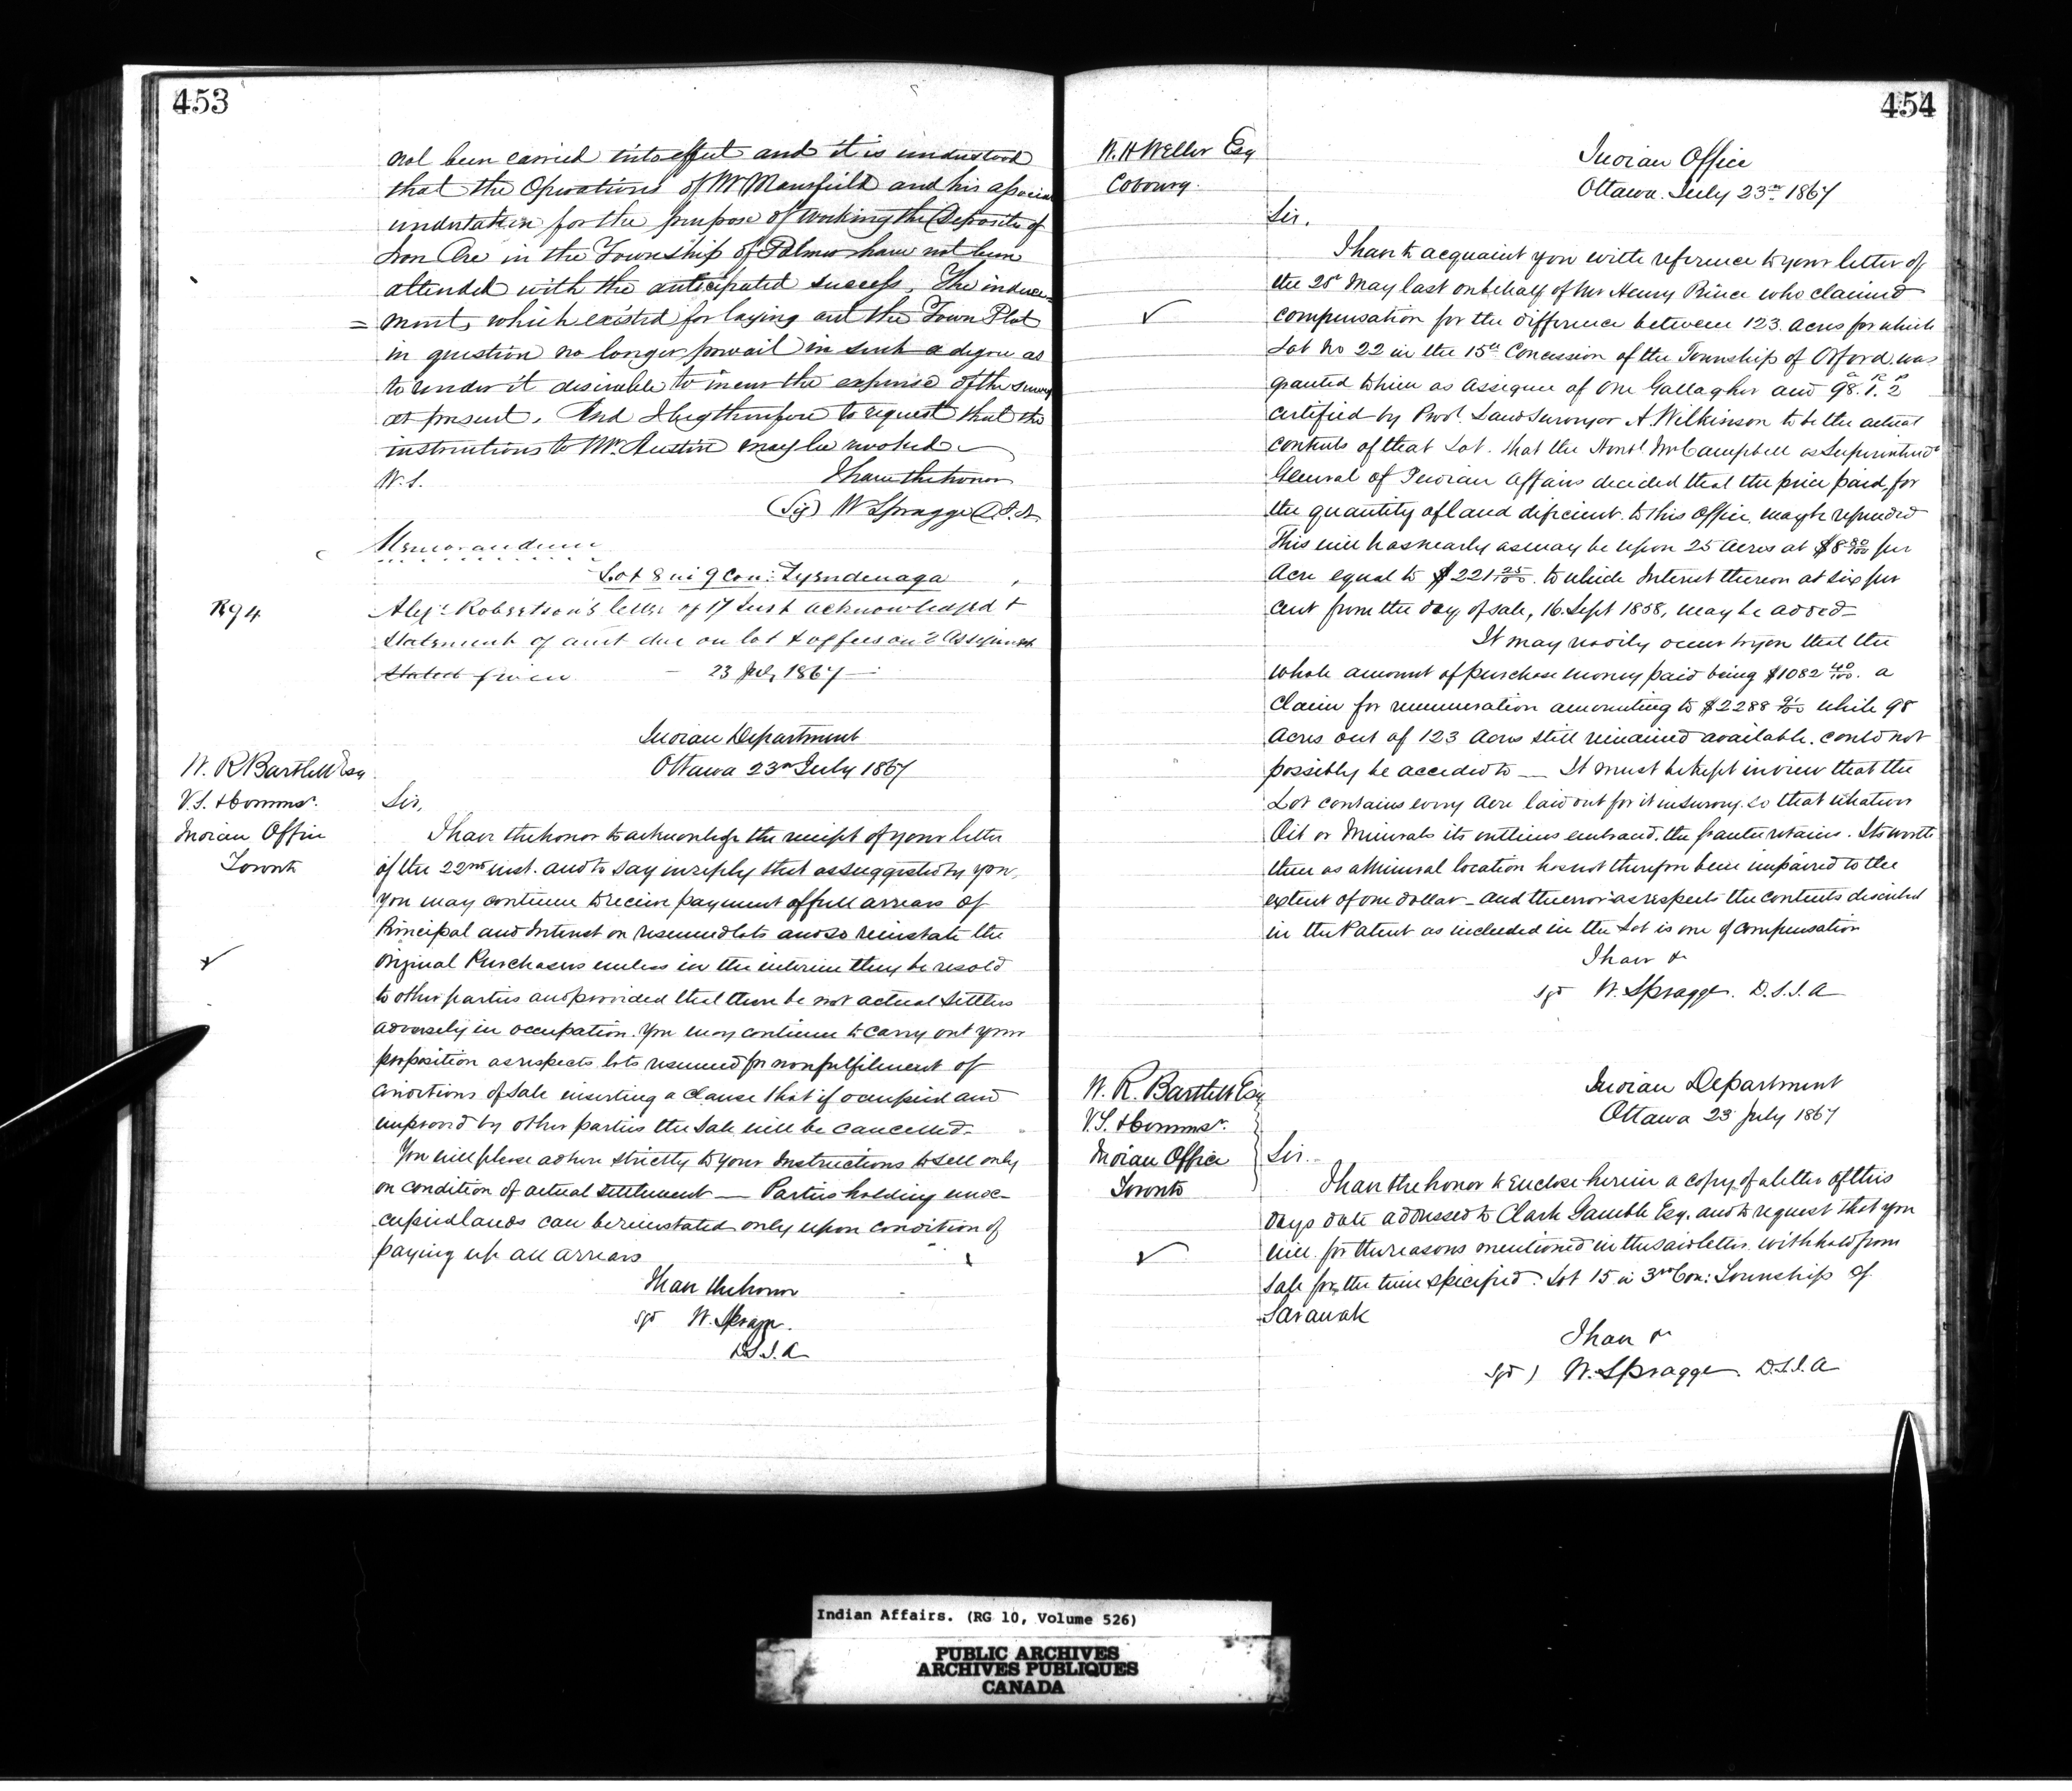 453
not been carried into effect and it is understood
that the Operations of Mr Mansfield and his associa
undertaken for the purpose of working the Deposits of
Iron Ore in the Township of Palmer have not been
attended with the anticipated success. The induce=
=ment, which existed for laying out the Town Plot
in question no longer prevail in such a degree as
to render it desirable to incur the expense of the survey
at present. And I beg therefore to request that the
instructions to Mr. Austin may be revoked.
W.S.
I have the honor
(Sig) W Spragge D.S.I.A.
Memorandum
Lot 8 in 9 Con: Tyendenaga
R94
Alexr. Robertson's letter of 17 Inst acknowledged &
Statement of amt due on lot & of fees on 2 Assignmts
stated given — 23 July 1867 —
Indian Department
Ottawa 23rd July 1867
W. R Bartlett Esq
V.S. & Commr.
Indian Office
Toronto
Sir,
I have the honor to acknowledge the receipt of your letter
of the 22nd inst. and to say in reply that as suggested by you,
you may continue to receive payment of full arrears of
Principal and Interest on resumed lots and so reinstate the
original Purchasers unless in the interim they be resold
to other parties and provided that there be not actual Settlers
adversely in occupation. You may continue to carry out your
proposition as respects lots resumed for nonfulfilment of
conditions of Sale inserting a clause that if occupied and
improved by other parties the Sale will be cancelled.
You will please adhere strictly to your Instructions to sell only
on condition of actual settlement — Parties holding unoc-
cupied lands can be reinstated only upon condition of
paying up all arrears
I have the honor
sgd W. Spragge.
D.S.I.A
454
W. H Weller Esq
Cobourg.
Indian Office
Ottawa. July 23rd 1867
Sir.
I have to acquaint you with reference to your letter of
the 25 May last on behalf of Mr Henry Prince who claimed
compensation for the difference between 123 acres for which
Lot No 22 in the 15th Concession of the Township of Orford was
granted to him as assignee of One Gallagher and 98 A. 1 R. 2 P
certified by Provl. Land Surveyor A. Wilkinson to be the actual
contents of that Lot. that the Honbl Mr Campbell as Superintendt
General of Indian Affairs decided that the price paid, for
the quantity of land deficient to this Office may be refunded
This will be as nearly as may be upon 25 Acres at $8 80/100 per
Acre equal to $221 25/100. to which Interest thereon at six per
cent from the day of sale, 16. Sept 1858, may be added—
It may readily occur to you that the
whole amount of purchase money paid being $1082 40/100. a
claim for remuneration amounting to $2288 91/100 while 98
Acres out of 123 Acres still remained available. could not
possibly be acceded to — It must be kept in view that the
Lot contains every Acre laid out for it in survey. so that whatever
Oil or Minerals its outlines embraced. the grantee retains. Its worth
then as a Mineral location has not therefore been impaired to the
extent of one dollar — and the error as respects the contents described
in the Patent as included in the Lot is one of compensation
I have &
sgd W. Spragge. D.S.I.A
W. R. Bartlett Esq
V.S. & Commr.
Indian Office
Toronto
Indian Department
Ottawa 23 July 1867
Sir.
I have the honor to enclose herein a copy of a letter of this
days date addressed to Clark Gamble Esq. and to request that you
will for the reasons mentioned in the said letter withhold from
Sale for the time specified. Lot 15 in 3rd Con: Township of
Sarawak
I have &
sgd) W. Spragge D.S.I.A
Indian Affairs. (RG 10, Volume 526)
PUBLIC ARCHIVES
ARCHIVES PUBLIQUES
CANADA